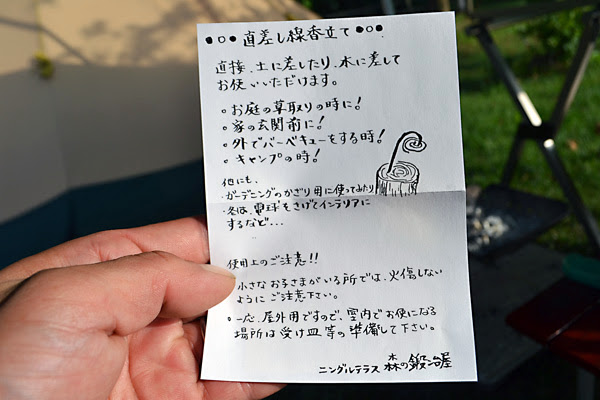 ●○● 直差し線香立て ●○●
直接、土に差したり、木に差して
お使いいただけます。
○お庭の草取りの時に!
○家の玄関前に!
○外でバーベキューをする時!
○キャンプの時!
他にも、
・ガーデニングのかざり用に使ってみたり
・冬は、電球をさげてインテリアに
するなど...
使用上のご注意!!
小さなお子さまがいる所では、火傷しない
ようにご注意下さい。
○一応、屋外用ですので、室内でお使になる
場所は受け皿等の準備して下さい。
ニングルテラス 森の鍛冶屋